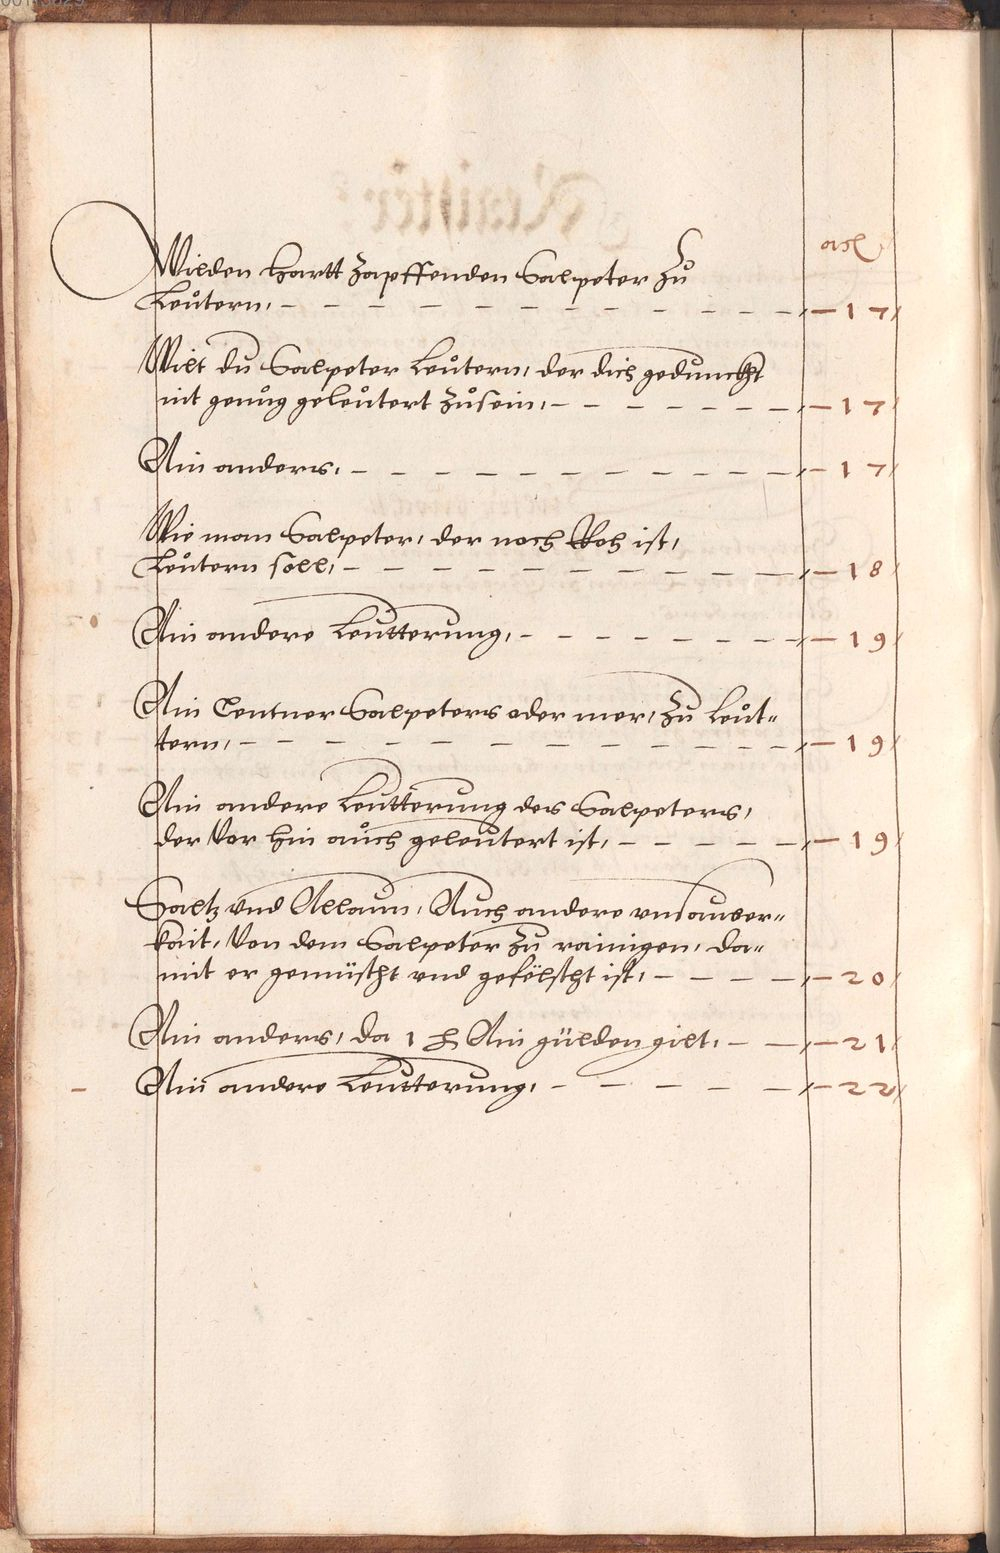 ach
Wilden hartt zapffenden Salpeter zů
Leůtern, — 17
Wilt dů Salpeter Leůtern, der dich gedunckht
nit genůg geleůtert zůsein, — 17
Ain anders, — 17
Wie man Salpeter, der noch Roh ist,
Leůtern soll, — 18
Ain andere Leůtterung, — 19
Ain Centner Salpeters oder mer, zů Leůt-
tern, — 19
Ain andere Leůtterung des Salpeters,
der Vor hin aůch geleůtert ist, — 19
Saltz vnd Allaun, Auch andere vnsauber-
kait, Von dem Salpeter zů rainigen, da-
mit er gemüscht vnd gefelscht ist, — 20
Ain anders, da 1 ℔ Ain gülden gilt, — 21
Ain andere Leůtterung, — 22